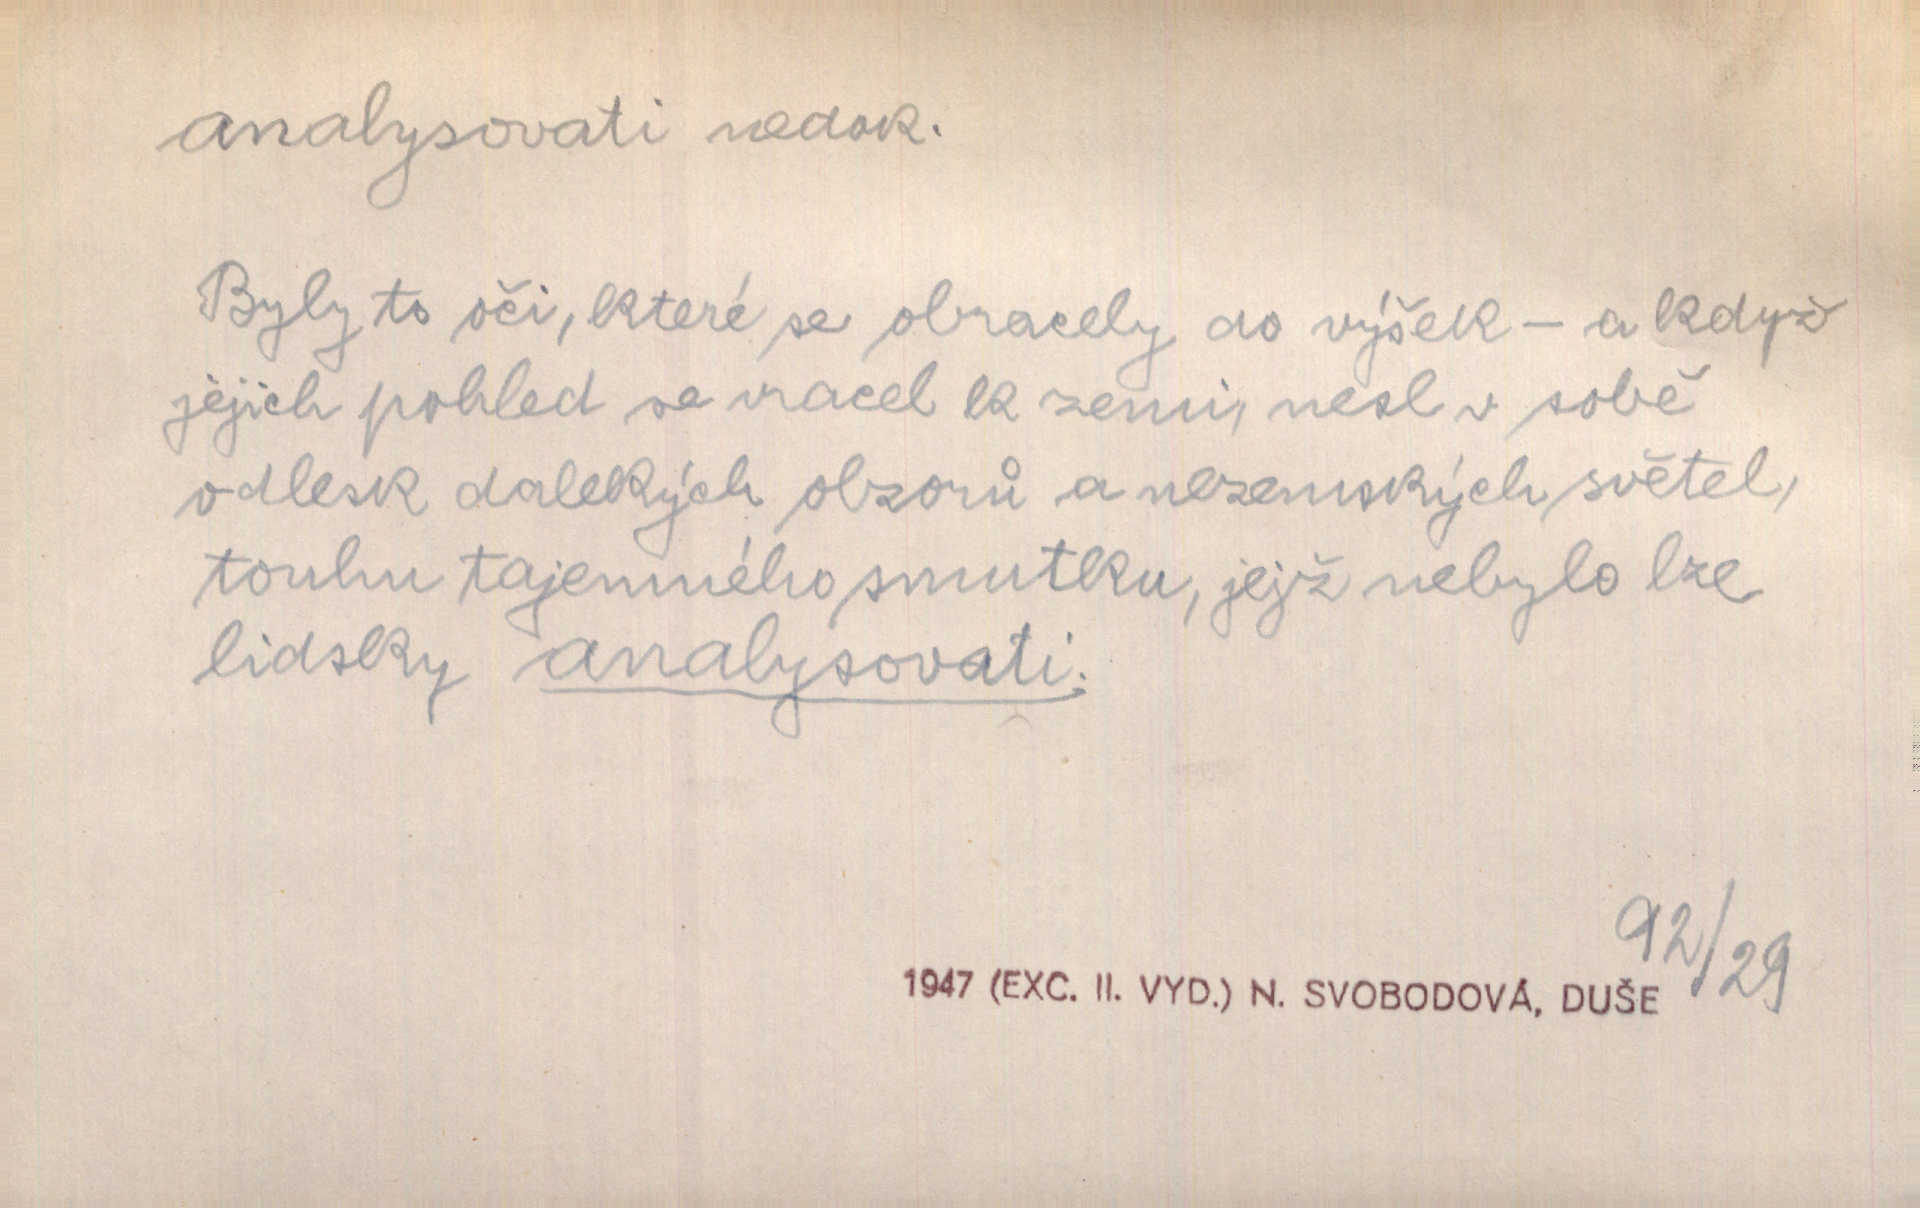 analysovati nedok.
Byly to oči, které se obracely do výšek – a když
jejich pohled se vracel k zemi, nesl v sobě
odlesk dalekých obzorů a nezemských světel,
touhu tajemného smutku, jejž nebylo lze
lidsky analysovati.
92/29
1947 (EXC. II. VYD.) N. SVOBODOVÁ, DUŠE